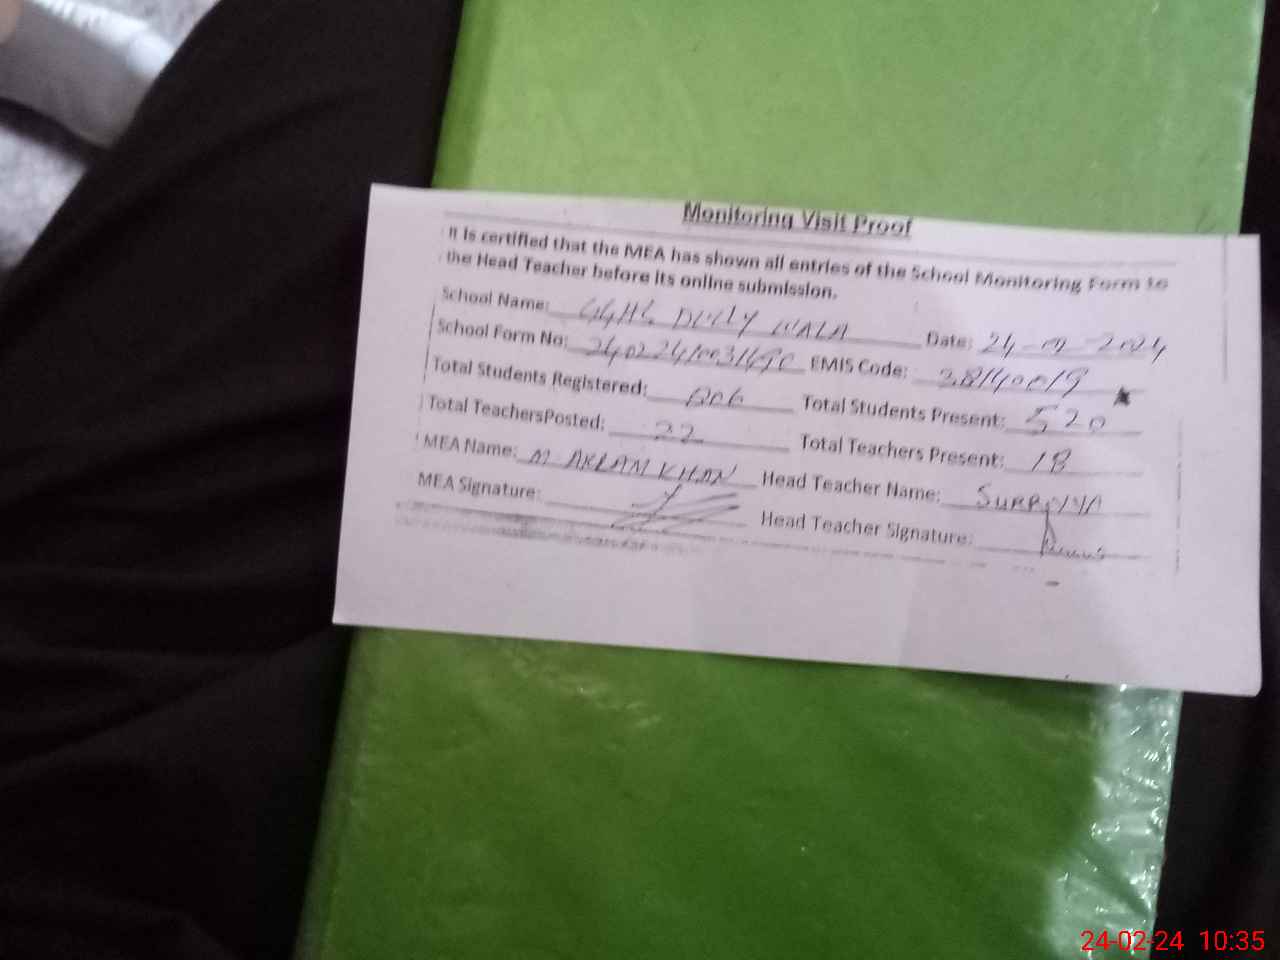 Monitoring Visit Proof
It is certified that the MEA has shown all entries of the School Monitoring Form to
the Head Teacher before its online submission.
School Name: GGHS DULLY WALA Date: 24-02-2024
School Form No: EMIS Code: 38140019
Total Students Registered: Total Students Present: 520
Total TeachersPosted: 22 Total Teachers Present: 18
MEA Name: M AKRAM KHAN Head Teacher Name: SURRIYYA
MEA Signature: Head Teacher Signature:
24-02-24 10:35